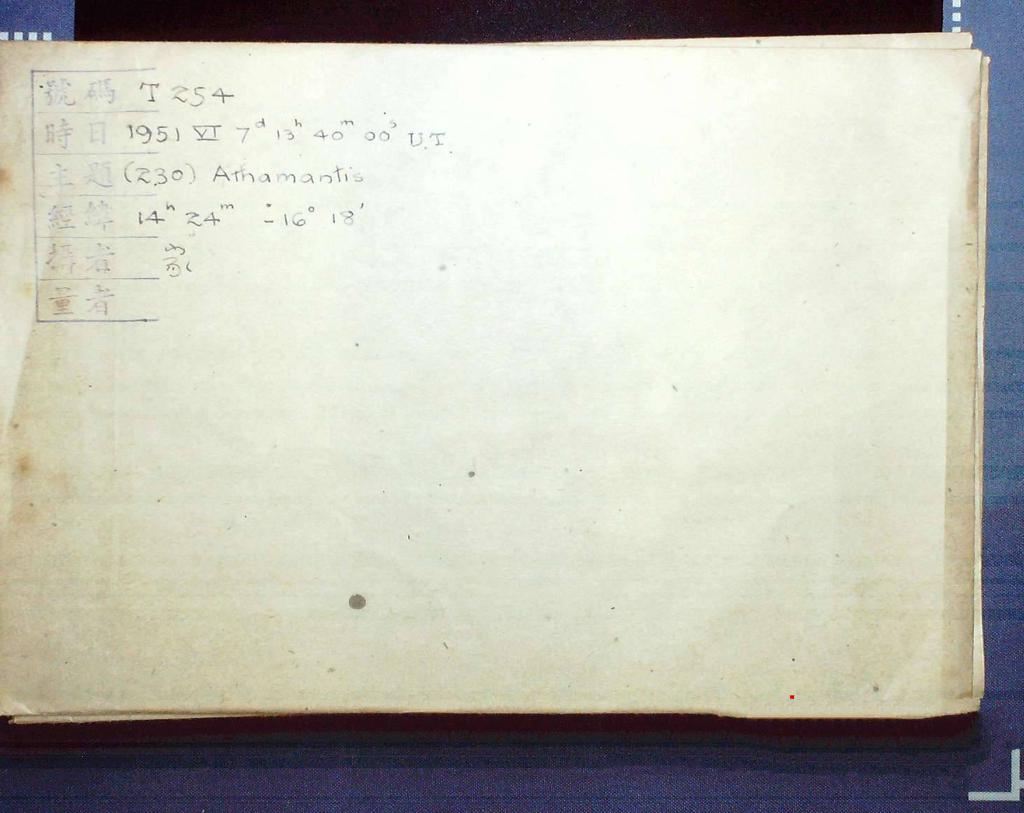 號碼 T 254
時日 1951 VI 7ᵈ 13ʰ 40ᵐ 00ˢ U.T.
主題 (230) Athamantis
經緯 14ʰ 24ᵐ -16° 18'
攝者
量者